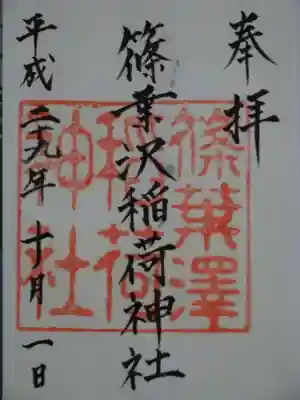 奉拝
篠葉沢稲荷神社
篠葉澤
稲荷
神社
平成二十九年十月一日